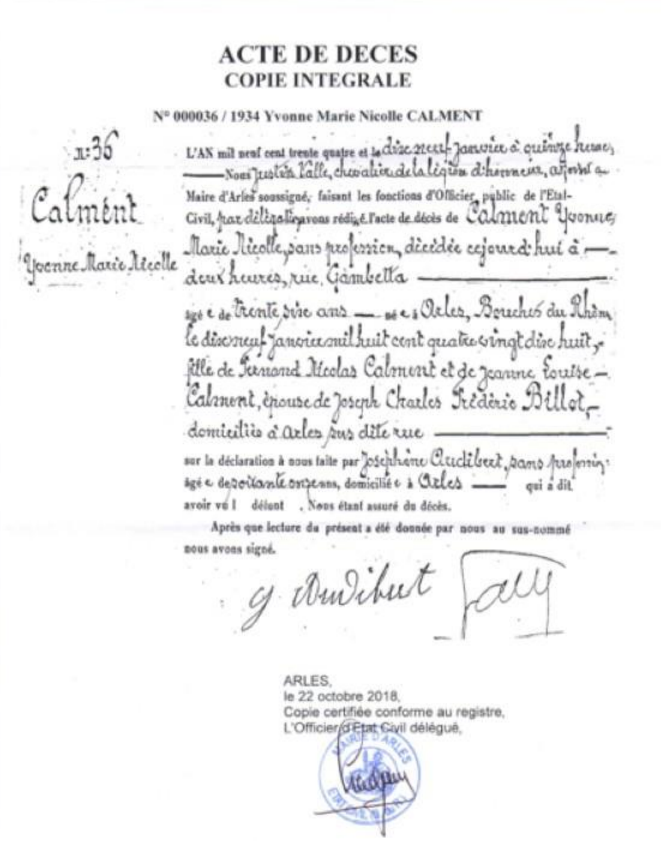 ACTE DE DECES
COPIE INTEGRALE
N° 000036 / 1934 Yvonne Marie Nicolle CALMENT
n: 36
Calment
Yvonne Marie Nicolle
L'AN mil neuf cent trente quatre et le dix neuf Janvier à quinze heures,
Nous Justin Valle, chevalier de la légion d'honneur, adjoint au
Maire d'Arles soussigné, faisant les fonctions d'Officier public de l'Etat-
Civil, par délégation avons rédigé l'acte de décès de Calment Yvonne,
Marie Nicolle, sans profession, décédée cejourd'hui à
deux heures, rue Gambetta
âgé e de trente six ans né e à Arles, Bouches du Rhône
le dix neuf Janvier mil huit cent quatre vingt dix huit,
fille de Fernand Nicolas Calment et de Jeanne Louise
Calment, épouse de Joseph Charles Frédéric Billot,
domiciliés à Arles sus dite rue
sur la déclaration à nous faite par Joséphine Audibert, sans profession
âgé e de soixante onze ans, domicilié e à Arles qui a dit
avoir vu l défunt . Nous étant assuré du décès.
Après que lecture du présent a été donnée par nous au sus-nommé
nous avons signé.
J. Audibert
ARLES,
le 22 octobre 2018,
Copie certifiée conforme au registre,
L'Officier d'Etat Civil délégué,
MAIRIE D'ARLES
ETAT CIVIL (B.d.R.)